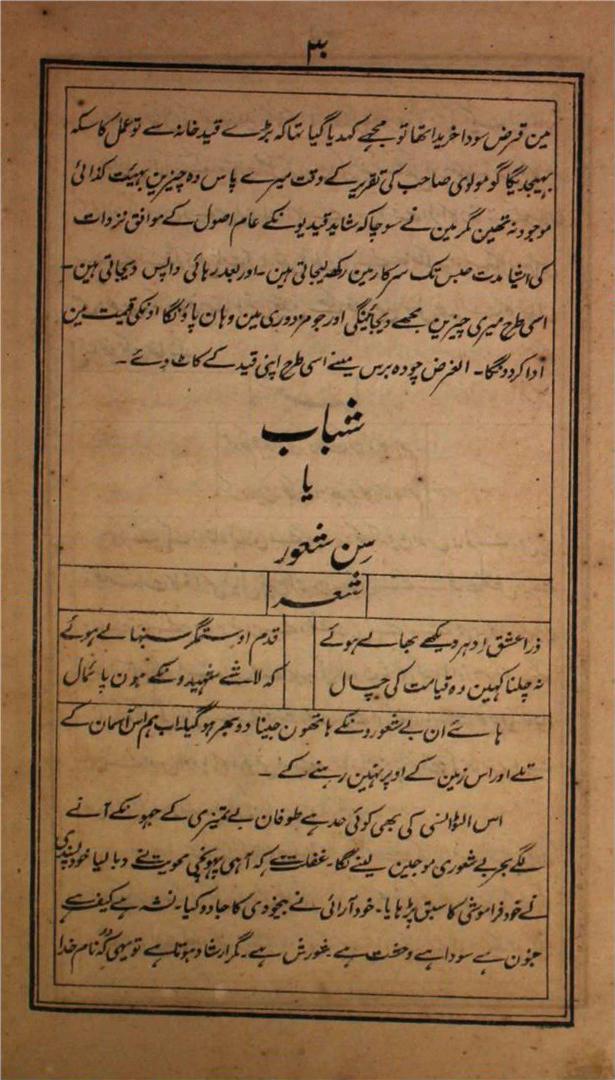 ۳۰
مین قرض سودا خریدا تھا تو مجھے کہدیا گیا تھا کہ بڑے قید خانہ سے تو عمل کا سکہ
بھیجدیگا گو مولوی صاحب کی تقریر کے وقت میرے پاس وہ چیزین بہیئت کذائی
موجود نہ تھین مگر مین نے سوچا کہ شاید قیدیونکے عام اصول کے موافق نزدات
کی اشیا مدت حبس تک سرکار مین رکھ لیجاتی ہین ۔ اور بعد رہائی واپس دیجاتی ہین ۔
اسی طرح میری چیزین مجھے دیجائینگی اور جو مزدوری مین وہان پاؤنگا اونکی قیمت مین
ادا کردونگا ۔ الغرض چودہ برس مینے اسی طرح اپنی قید کے کاٹ دئے ۔
شباب
یا
سِن شعور
شعر
ذرا عشق ادہر دیکھے بھالے ہوئے قدم او ستمگر سنبھالے ہوئے
نہ چلنا کہین وہ قیامت کی چال کہ لاشے شہیدونکے ہون پائمال
ہائے ان بے شعورونکے ہاتھون جینا دوبھر ہوگیا ۔ اب ہم اس آسمان کے
تلے اور اس زمین کے اوپر نہین رہنے کے ۔
اس الٹوانسی کی بھی کوئی حد ہے طوفان بے تمیزی کے جہونکے آنے
لگے بحر بے شعوری موجین لینے لگا ۔ غفلت ہے کہ آہی پہونچی محویت نے دبا لیا خود پسندی
نے خود فراموشی کا سبق پڑہایا ۔ خود آرائی نے بیخودی کا جادہ کیا ۔ نشہ ہے کیف ہے
جنون ہے سودا ہے وحشت ہے شورش ہے ۔ مگر ارشاد ہوتا ہے تو یہی کہ نام خدا